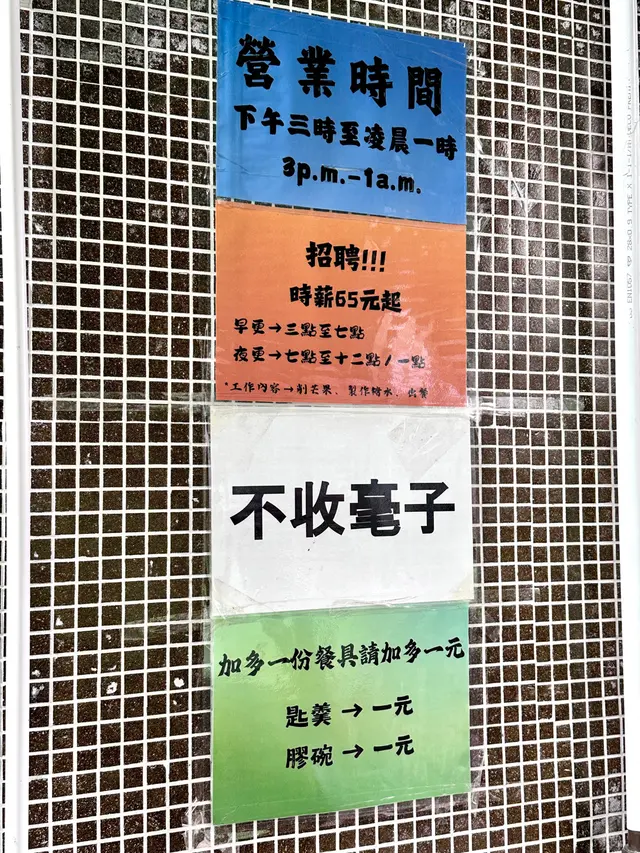 營業時間
下午三時至凌晨一時
3p.m.-1a.m.
招聘!!!
時薪65元起
早更→三點至七點
夜更→七點至十二點/一點
*工作內容→削芒果、製作糖水、出餐
不收毫子
加多一份餐具請加多一元
匙羹→一元
膠碗→一元